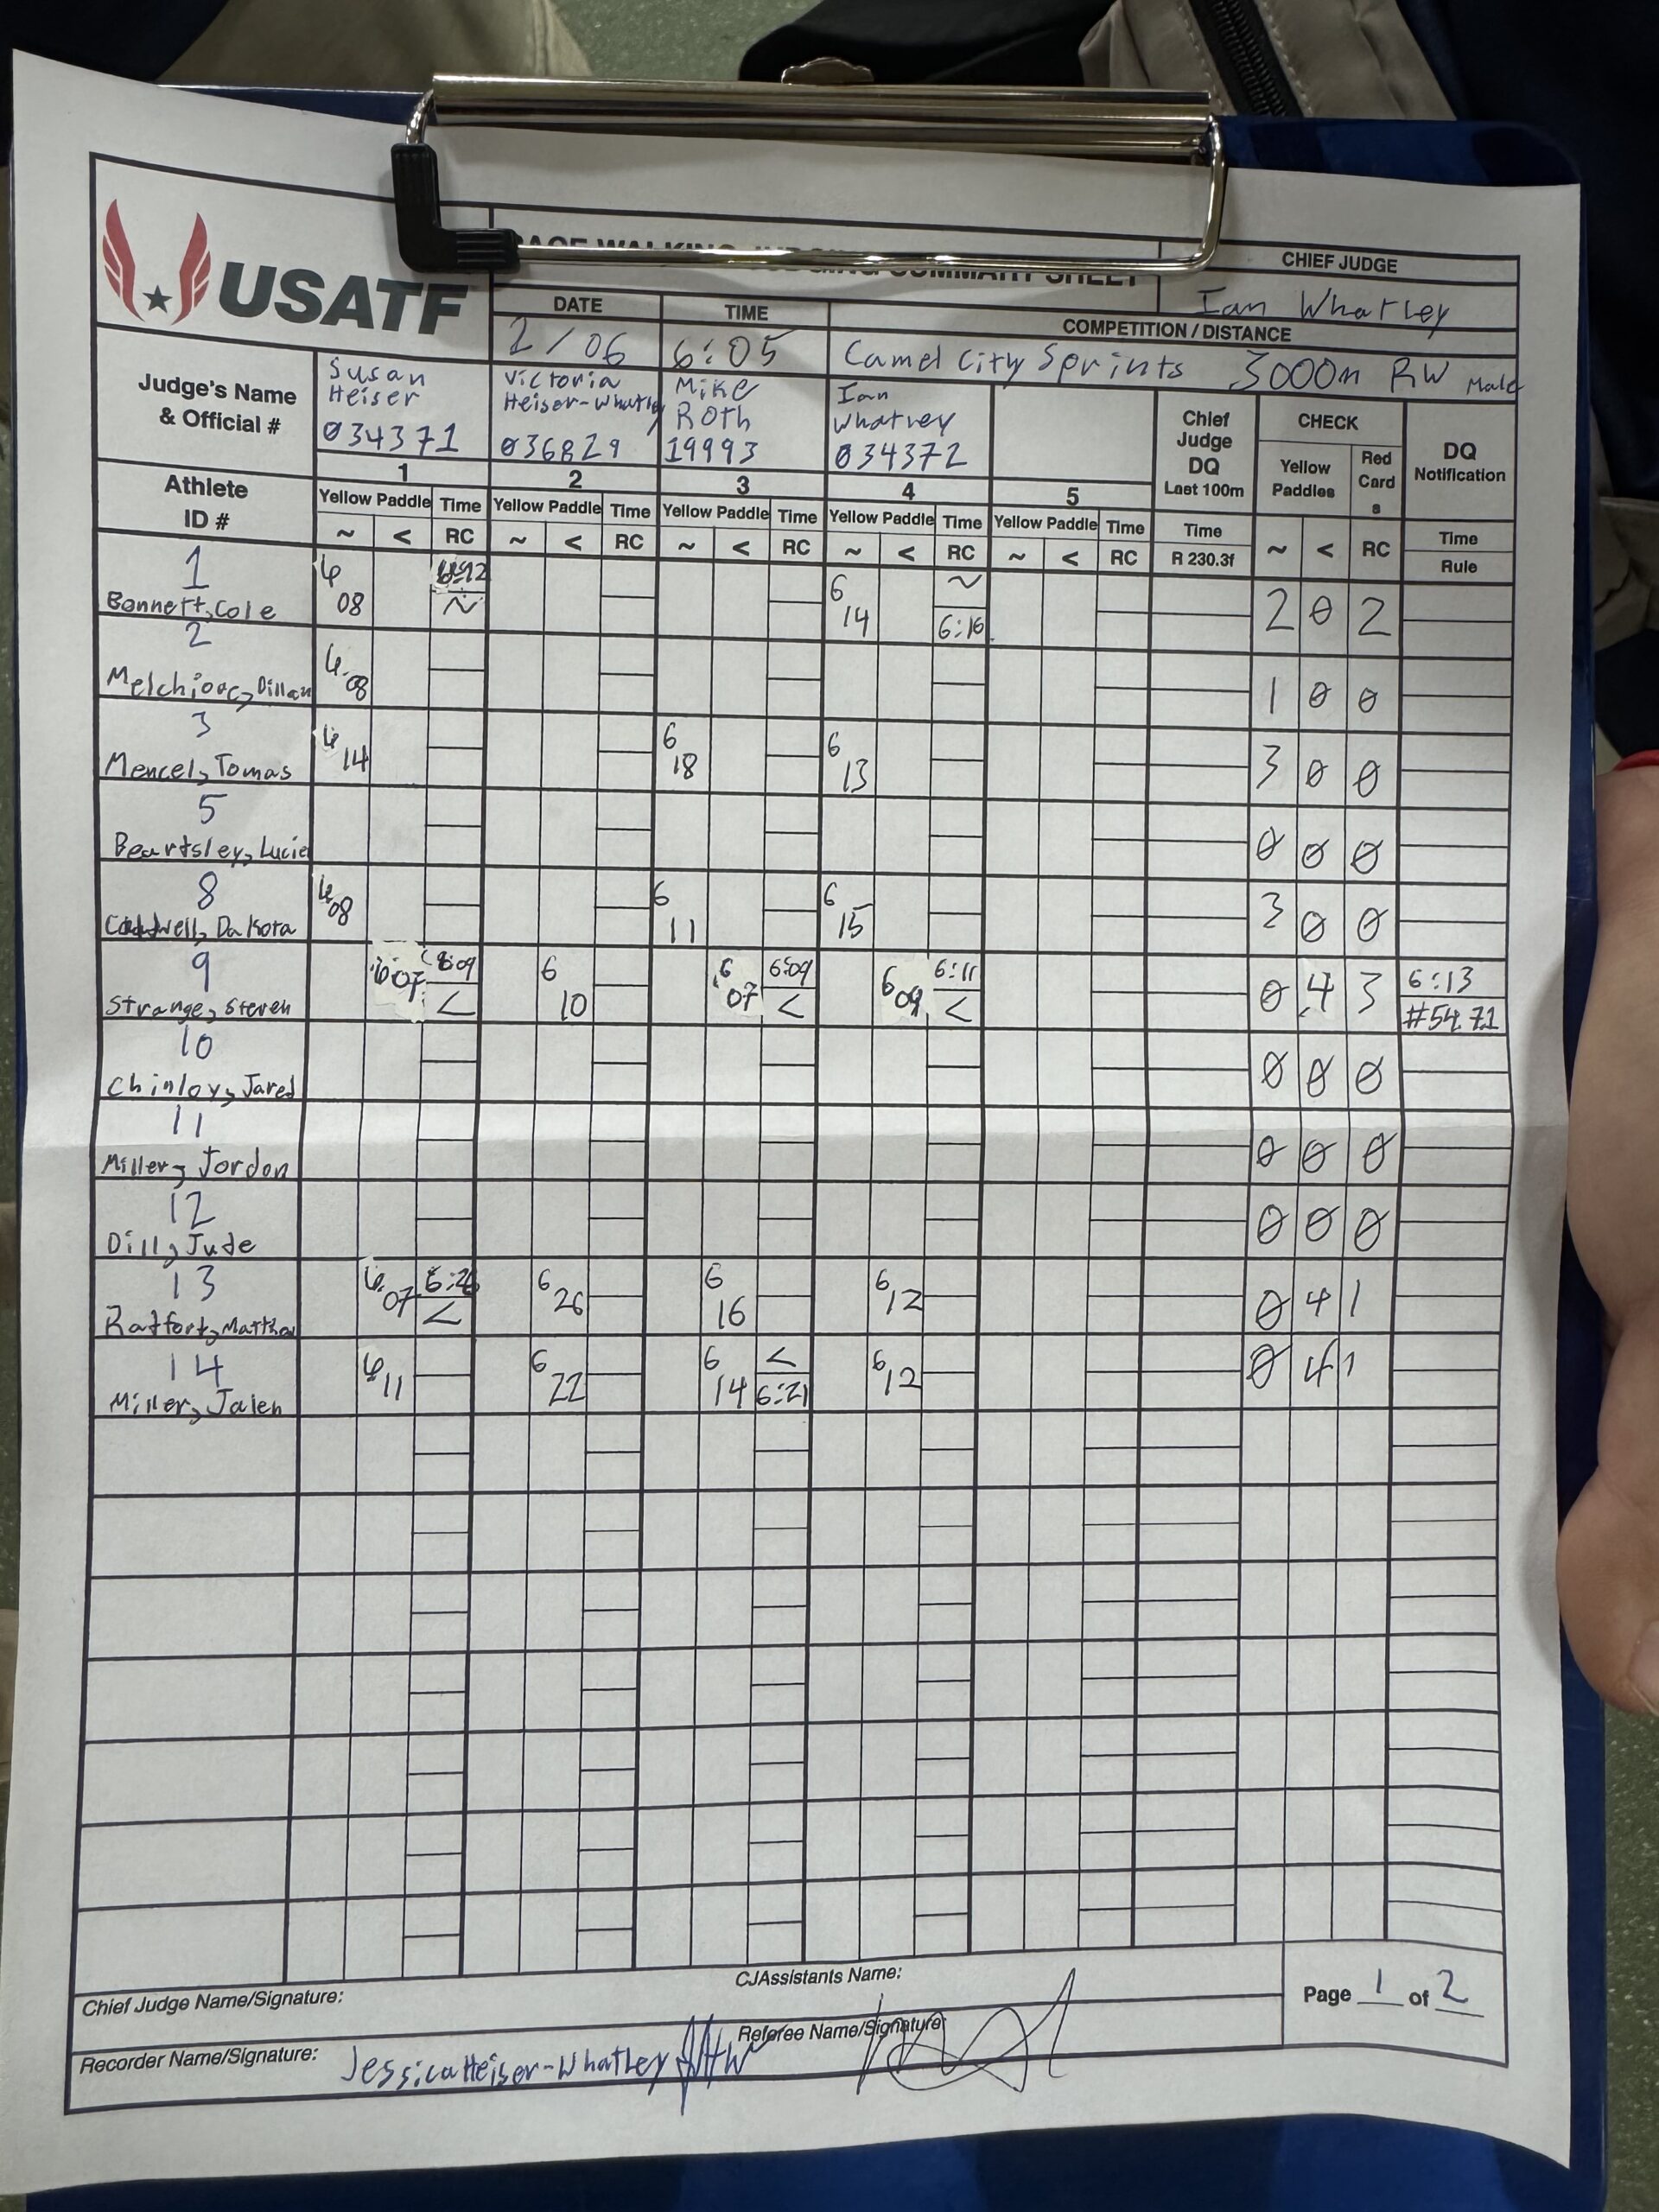 USATF
RACE WALKING JUDGING SUMMARY SHEET
CHIEF JUDGE
Ian Whatley
DATE
TIME
COMPETITION / DISTANCE
2/06
6:05
Camel City Sprints 3000m RW Male
Judge's Name
& Official #
Susan
Heiser
034371
Victoria
Heiser-Whatley
036829
Mike
Roth
19993
Ian
Whatley
034372
Chief
Judge
DQ
Last 100m
CHECK
Yellow
Paddles
Red
Card
s
DQ
Notification
Athlete
ID #
1 2 3 4 5
Yellow Paddle Time Yellow Paddle Time Yellow Paddle Time Yellow Paddle Time Yellow Paddle Time Time Time
~ < RC ~ < RC ~ < RC ~ < RC ~ < RC R 230.3f ~ < RC Rule
1
Bennett, Cole
6 08 6:12 ~ 6 14 ~ 6:16 2 0 2
2
Dillan
6:08 1 0 0
3
Mencel, Tomas
6 14 6 18 6 13 3 0 0
5
Beartsley, Lucie
0 0 0
8
Dakota
6 08 6 11 6 15 3 0 0
9
Strange, Steven
6:07 6:09 < 6 10 6 07 6:09 < 6 09 6:11 < 0 4 3 6:13
#54.71
10
Chinloy, Jared
0 0 0
11
Miller, Jordon
0 0 0
12
Dill, Jude
0 0 0
13
Ratfort, Matthew
6 07 6:26 < 6 26 6 16 6 12 0 4 1
14
Miller, Jalen
6 11 6 22 6 14 < 6:21 6 12 0 4 1
CJAssistants Name:
Chief Judge Name/Signature:
Page 1 of 2
Referee Name/Signature:
Recorder Name/Signature: Jessica Heiser-Whatley JHW